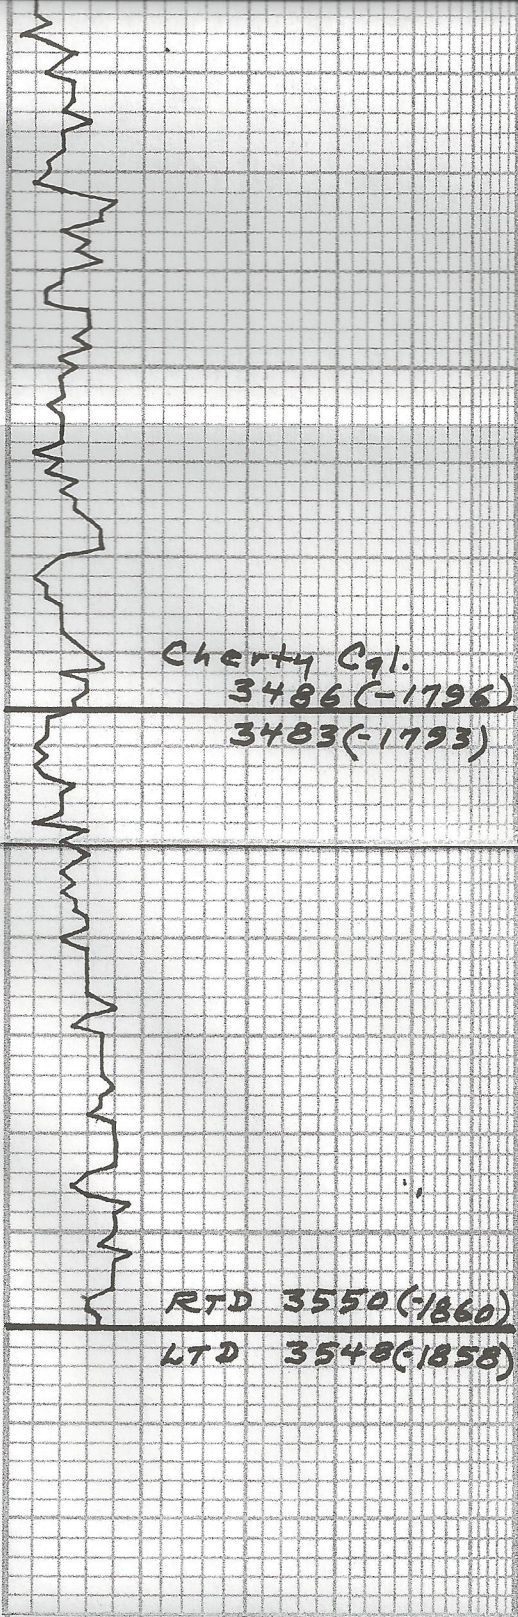 Cherty Cgl.
3486 (-1796)
3483 (-1793)
RTD 3550 (-1860)
LTD 3548 (-1858)